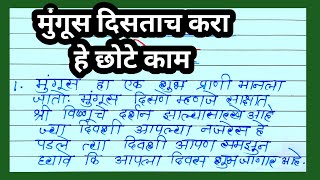 मुंगूस दिसताच करा
हे छोटे काम
1. मुंगूस हा एक शुभ प्राणी मानला
जातो. मुंगूस दिसणे म्हणजे साक्षात
श्री विष्णूचे दर्शन झाल्यासारखे आहे
ज्या दिवशी आपल्या नजरेस हे
पडले त्या दिवशी आपण समजून
घ्यावे कि आपला दिवस शुभ जाणार आहे.